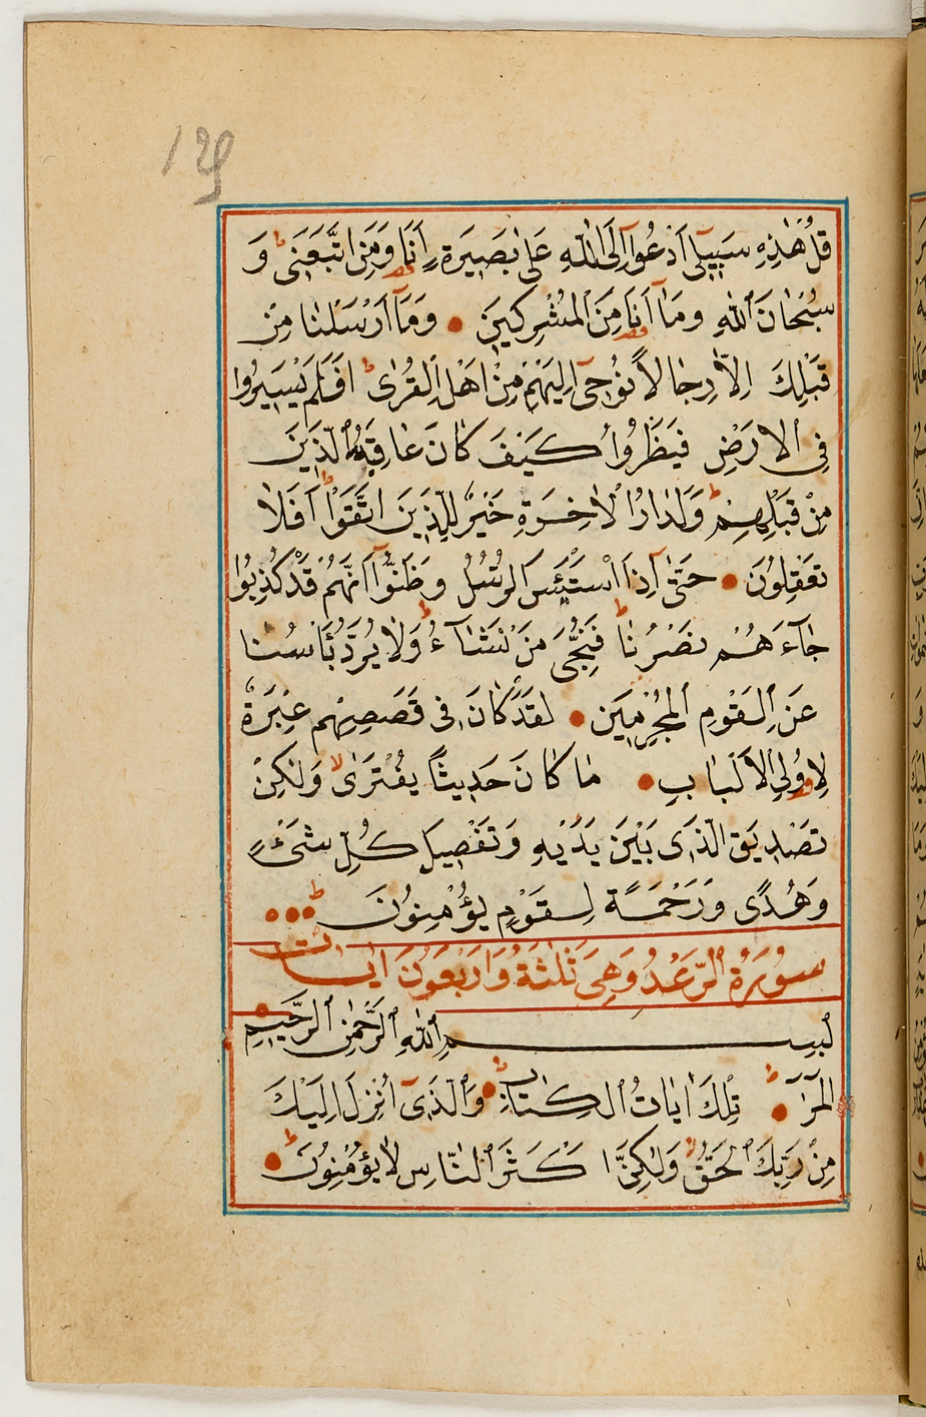 ١٢٩
قُلْ هٰذِهِ سَبِيلِىٓ اَدْعُوٓا اِلَى اللّٰهِ عَلٰى بَصِيرَةٍ اَنَا۬ وَمَنِ اتَّبَعَنِىۜ وَ
سُبْحَانَ اللّٰهِ وَمَآ اَنَا۬ مِنَ الْمُشْرِكِينَ وَمَآ اَرْسَلْنَا مِنْ
قَبْلِكَ اِلَّا رِجَالًا نُوحِىٓ اِلَيْهِمْ مِنْ اَهْلِ الْقُرٰىۜ اَفَلَمْ يَسِيرُوا
فِى الْاَرْضِ فَيَنْظُرُوا كَيْفَ كَانَ عَاقِبَةُ الَّذِينَ
مِنْ قَبْلِهِمْ وَلَدَارُ الْاٰخِرَةِ خَيْرٌ لِلَّذِينَ اتَّقَوْا اَفَلَا
تَعْقِلُونَ حَتّٰىٓ اِذَا اسْتَيْـَٔسَ الرُّسُلُ وَظَنُّوٓا اَنَّهُمْ قَدْ كُذِبُوا
جَآءَهُمْ نَصْرُنَا فَنُجِّىَ مَنْ نَشَآءُ وَلَا يُرَدُّ بَأْسُنَا
عَنِ الْقَوْمِ الْمُجْرِمِينَ لَقَدْ كَانَ فِى قَصَصِهِمْ عِبْرَةٌ
لِاُو۬لِى الْاَلْبَابِ مَا كَانَ حَدِيثًا يُفْتَرٰى وَلٰكِنْ
تَصْدِيقَ الَّذِى بَيْنَ يَدَيْهِ وَتَفْصِيلَ كُلِّ شَىْءٍ
وَهُدًى وَرَحْمَةً لِقَوْمٍ يُؤْمِنُونَ
سُورَةُ الرَّعْدُ وَهِىَ ثَلٰثَةُ وَاَرْبَعُونَ اٰيات
بِسْمِ اللّٰهِ الرَّحْمٰنِ الرَّحِيمِ
الٓمٓرٰ تِلْكَ اٰيَاتُ الْكِتَابِ وَالَّذِىٓ اُنْزِلَ اِلَيْكَ
مِنْ رَبِّكَ الْحَقُّ وَلٰكِنَّ اَكْثَرَ النَّاسِ لَا يُؤْمِنُونَ